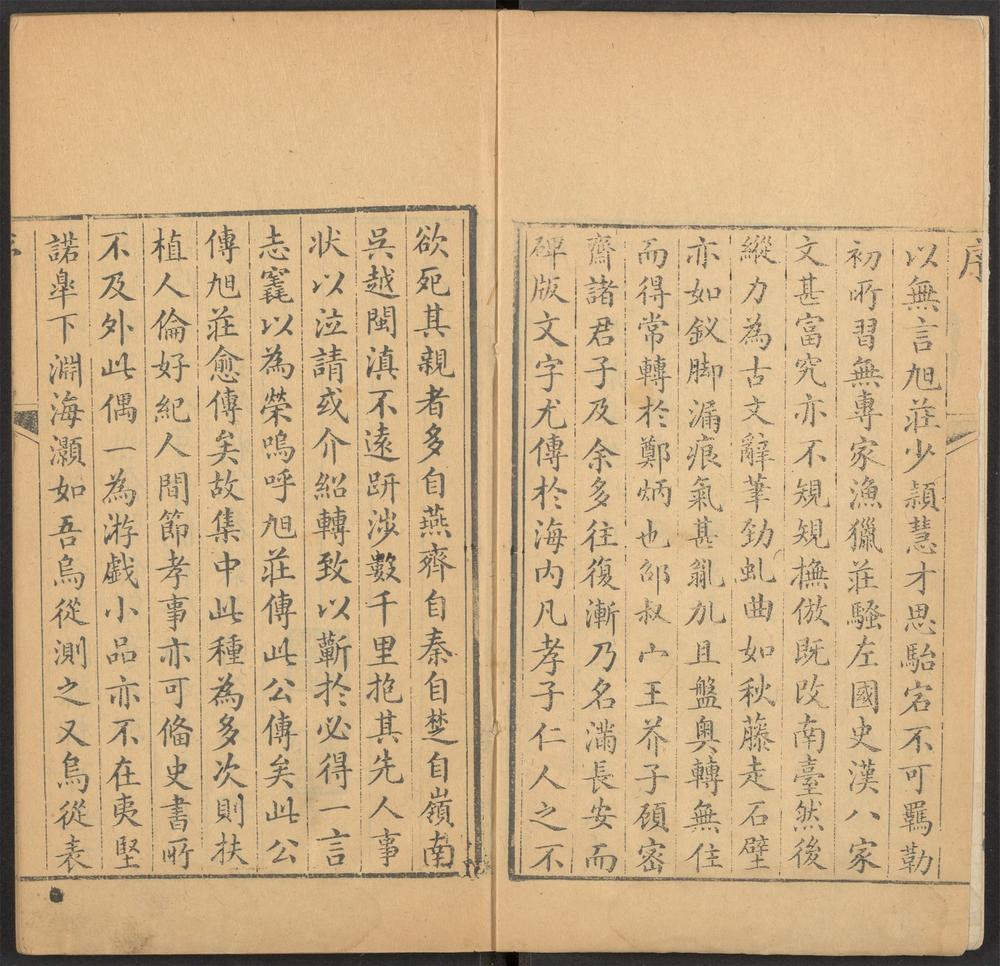 序
以無言旭莊少頴慧才思駘宕不可羈勒
初所習無專家漁獵莊騷左國史漢八家
文甚富究亦不規規撫倣既改南臺然後
縱力為古文辭筆勁虬曲如秋藤走石壁
亦如釵脚漏痕氣甚亂九且盤奧轉無住
而得常轉於鄭炳也邵叔宀王芥子碩宻
齋諸君子及余多往復漸乃名滿長安而
碑版文字尤傳於海内凡孝子仁人之不
欲死其親者多自燕齊自秦自楚自嶺南
吳越閩滇不遠趼涉數千里抱其先人事
狀以泣請或介紹轉致以蘄於必得一言
志窀以為榮嗚呼旭莊傳此公傳矣此公
傳旭莊愈傳矣故集中此種為多次則扶
植人倫好紀人間節孝事亦可俻史書所
不及外此偶一為游戲小品亦不在夷堅
諾臯下淵海灝如吾烏從測之又烏從表